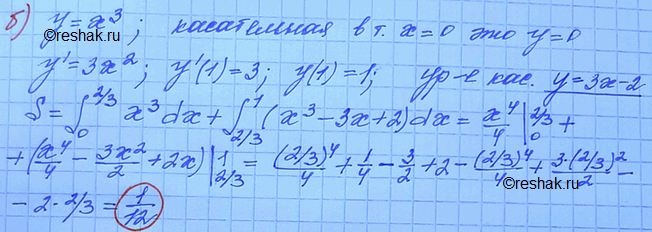 б) y = x³; касательная в т. x=0 это y=0
©reshak.ru
y' = 3x²; y'(1) = 3; y(1) = 1; ур-е кас. y=3x-2
S = ∫₀^{2/3} x³ dx + ∫_{2/3}^1 (x³ - 3x + 2) dx = x⁴/4 |₀^{2/3} +
+ (x⁴/4 - 3x²/2 + 2x) |_{2/3}^1 = (2/3)⁴/4 + 1/4 - 3/2 + 2 - (2/3)⁴/4 + 3·(2/3)²/2 -
- 2·2/3 = 1/12
©reshak.ru